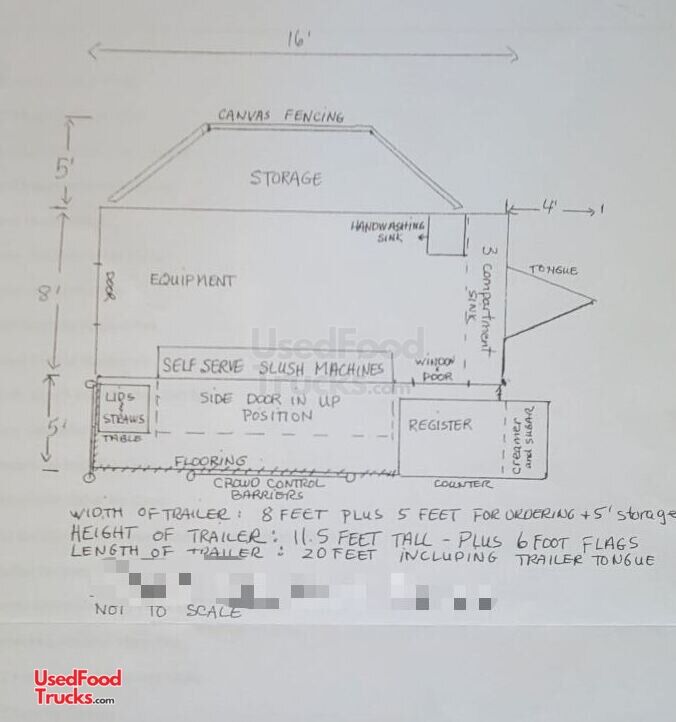 16'
CANVAS FENCING
5'
STORAGE
4'
HANDWASHING
SINK
3 compartment
SINK
TONGUE
DOOR
EQUIPMENT
8'
UsedFood
Trucks.com
SELF SERVE SLUSH MACHINES
WINDOW
DOOR
5'
LIDS
&
STRAWS
TABLE
SIDE DOOR IN UP
POSITION
REGISTER
creamer
and SUGAR
FLOORING
CROWD CONTROL
BARRIERS
COUNTER
WIDTH OF TRAILER: 8 FEET PLUS 5 FEET FOR ORDERING + 5' storage
HEIGHT OF TRAILER: 11.5 FEET TALL - PLUS 6 FOOT FLAGS
LENGTH OF TRAILER: 20 FEET INCLUDING TRAILER TONGUE
NOT TO SCALE
UsedFood
Trucks.com